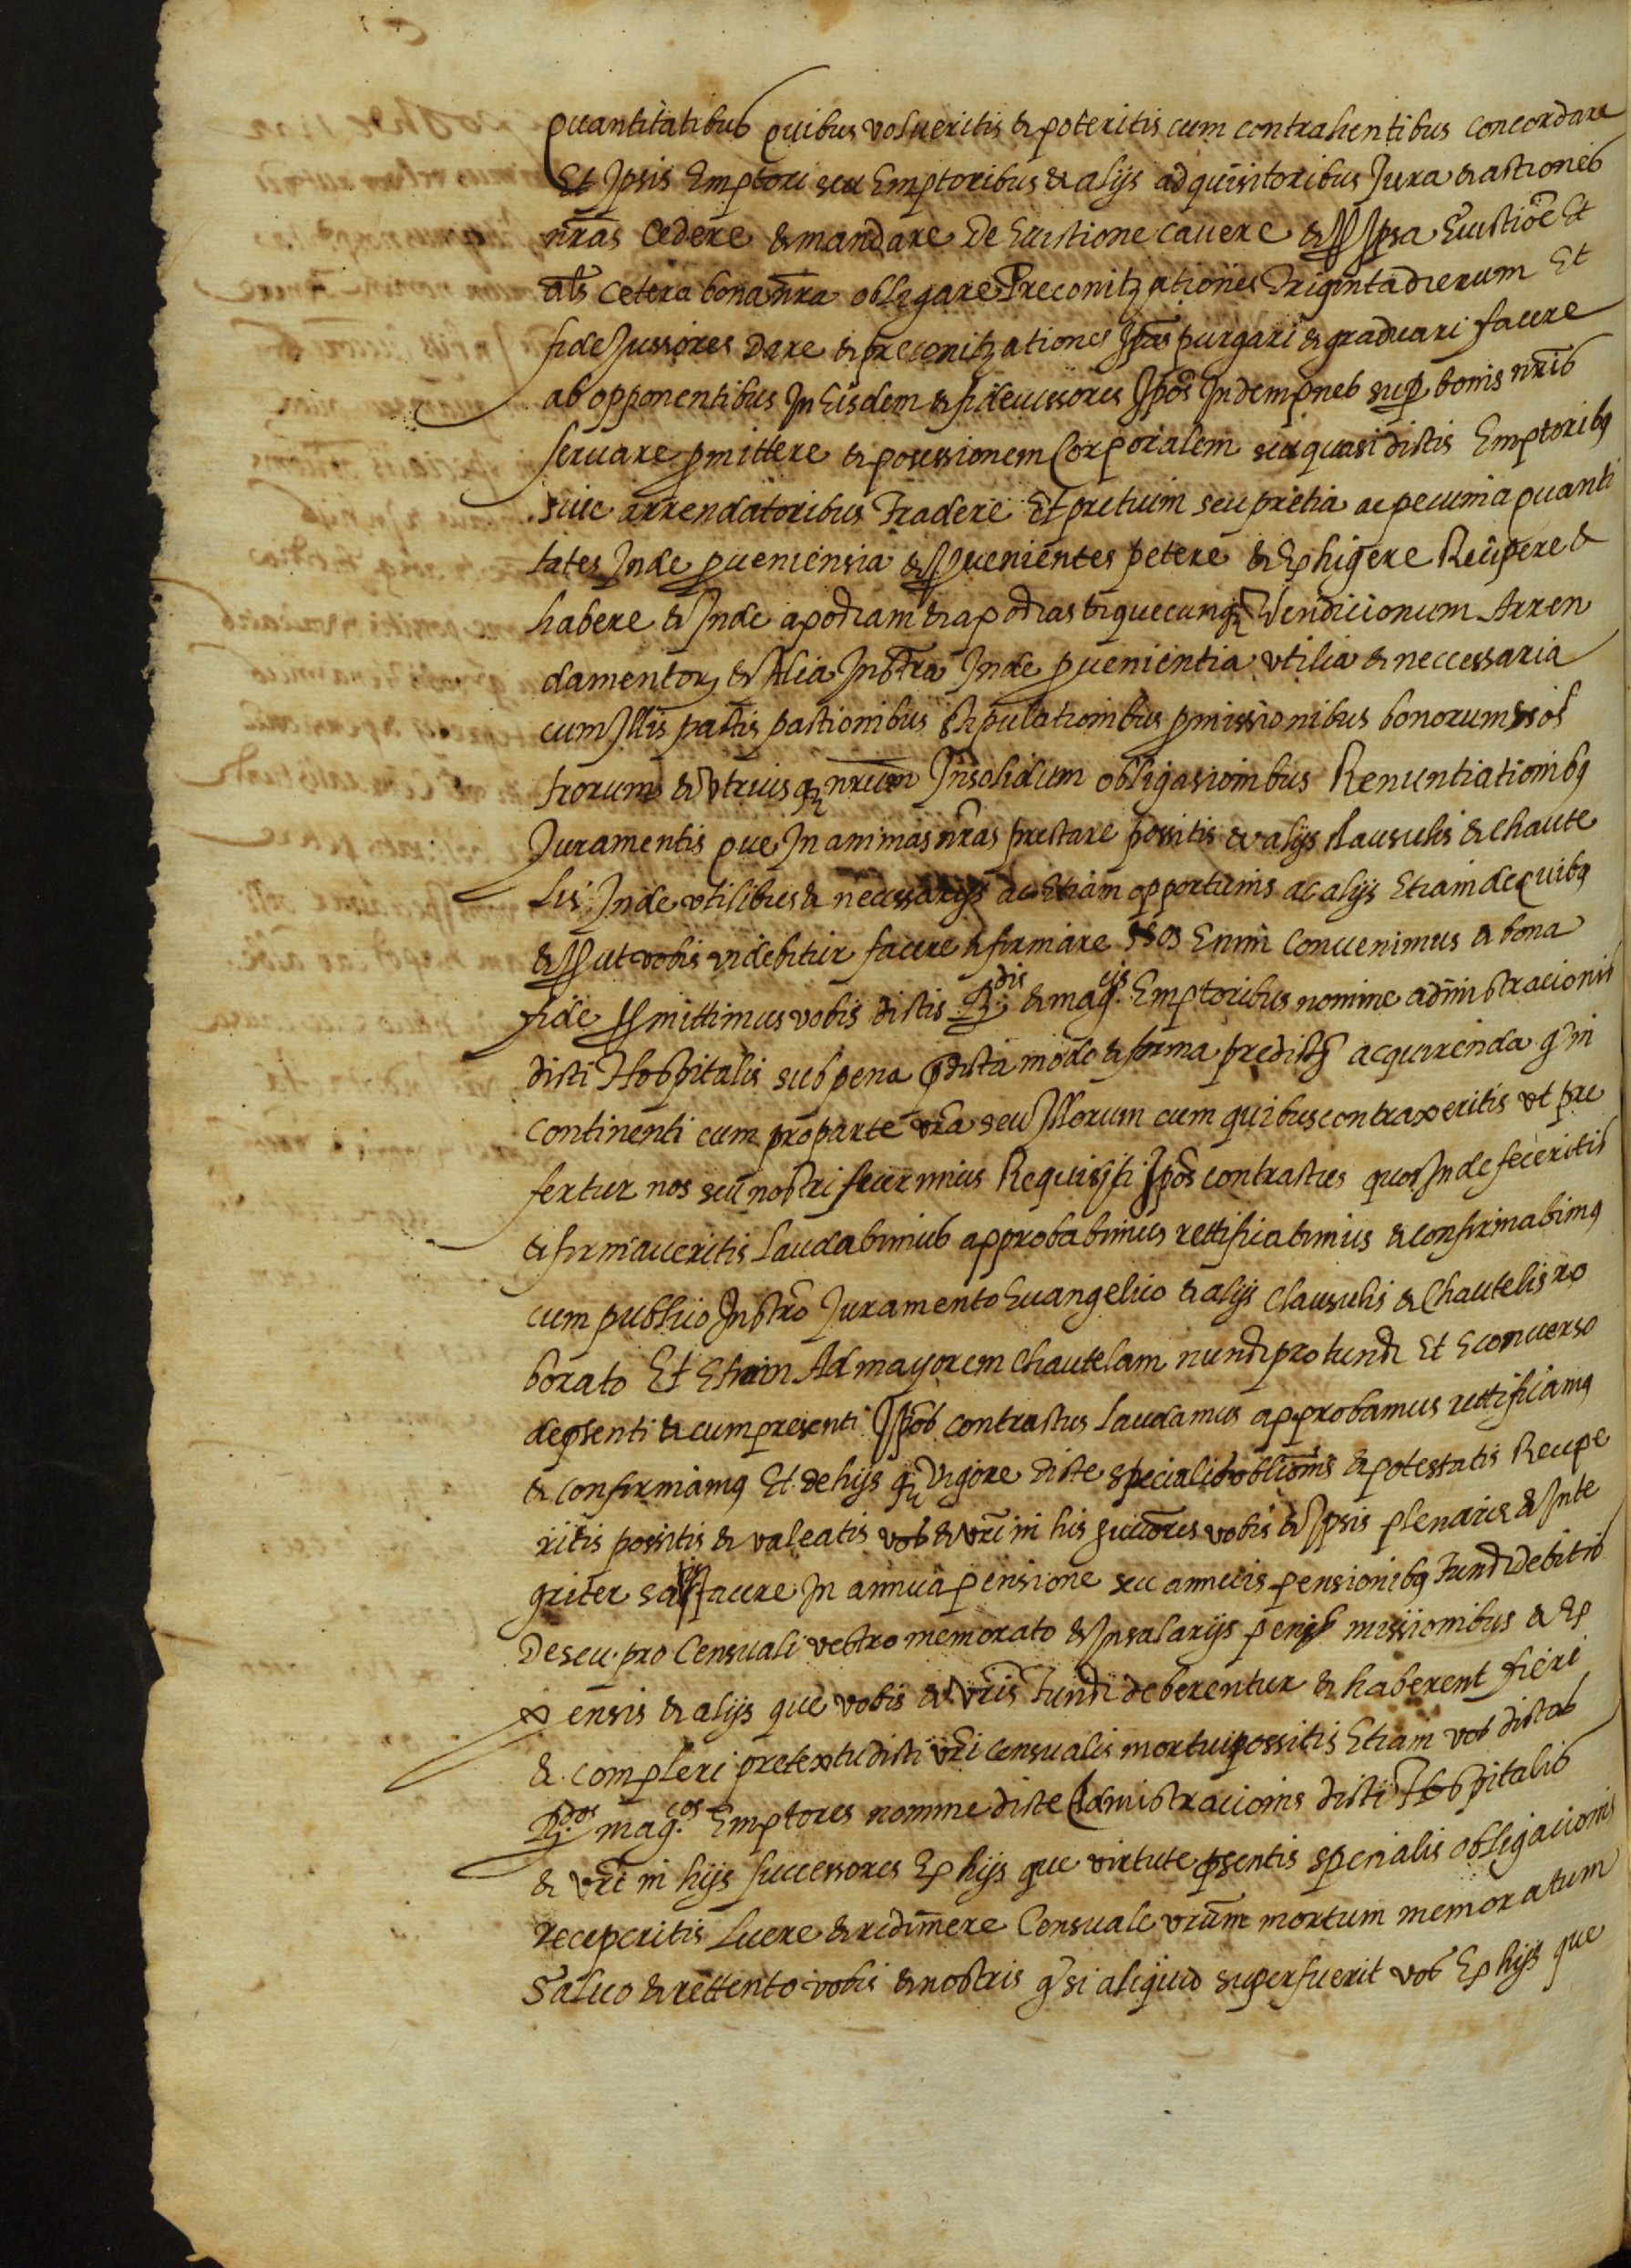 quantitatibus quibus volueritis & poteritis cum contrahentibus concordare
Et Ipsis Emptori seu Emptoribus & alijs adquisitoribus Jura & actiones
nr̃as Cedere & mandare De Euictione cauere & Ipsa Euictiõe Et
als Cetera bona nr̃a obligare Preconitzationes Triginta dierum Et
fideJussores Dare & preconitzationes Ip̃as purgari & graduari facere
ab opponentibus In Eisdem & fideiussores Ip̃os Indempnes sup bonis nr̃is
seruare pmittere & possessionem Corporalem seu quasi dictis Emptoribq
siue arrendatoribus Tradere Et pretium seu pretia ac pecunia quanti
tates Inde pueniensia & puenientes petere & Exhigere Recipere &
habere & Inde apodiam & apodias & quecunq Vendicionum Arren
damentor, & Alia Instr̃a Inde puenientia vtilia & neccessaria
cum Illis pactis pactionibus stipulationibus pmissionibus bonorum nos
trorum & vtriusq nr̃um Insolidum obligasionibus Renuntiationibq
Juramentis que In animas nr̃as prestare possitis & alijs Clausulis & chaute
lis Inde vtilibus & necessarijs ac Etiam opportunis ac alijs Etiam de quibq
& put vobis videbitur facere & firmare Nos Enim Conuenimus & bona
fide pmittimus vobis dictis R.dis & mag.cis Emptoribus nomine adm̃istracionis
dicti Hospitalis sub pena p̃dicta modo & forma predict acquirenda q in
continenti cum pro parte vr̃a seu Illorum cum quibus contraxeritis vt pre
fertur nos seu nostri fuerimus Requisiti Ip̃os contractus quos Inde feceritis
& firmaueritis Laudabimus approbabimus rettificabimus & confirmabimq
cum publico Instr̃o Juramento Euangelico & alijs Clausulis & Chautelis ro
borato Et Etiam Ad mayorem Chautelam nunc pro tunc Et Econuerso
de psenti & cum presenti Ip̃os contractus Laudamus approbamus rettificamq
& confirmamq Et de hijs q Vigore dicte specialis obliõnis & potestatis Recipe
ritis possitis & valeatis vos & vr̃i in his succõres vobis & Ipsis plenarie & Inte
griter satisfacere In annua pensione seu annuis pensionibq Tunc Debitis
De seu pro Censuali vestro memorato & In salarijs penis missionibus & Ex
pensis & alijs que vobis & vr̃is Tunc deberentur & haberent fieri
& compleri pretextu dicti vr̃i censualis mortui possitis Etiam vos dictos
R.dos mag.cos Emptores nomine dicte Adm̃istracionis dicti Hospitalis
& vr̃i in hijs successores Ex hijs que virtute psentis specialis obligacionis
receperitis Luere & redimere Censuale vr̃um mortum memoratum
Saluo & rettento vobis & nostris q si aliquid superfuerit vos Ex hijs que